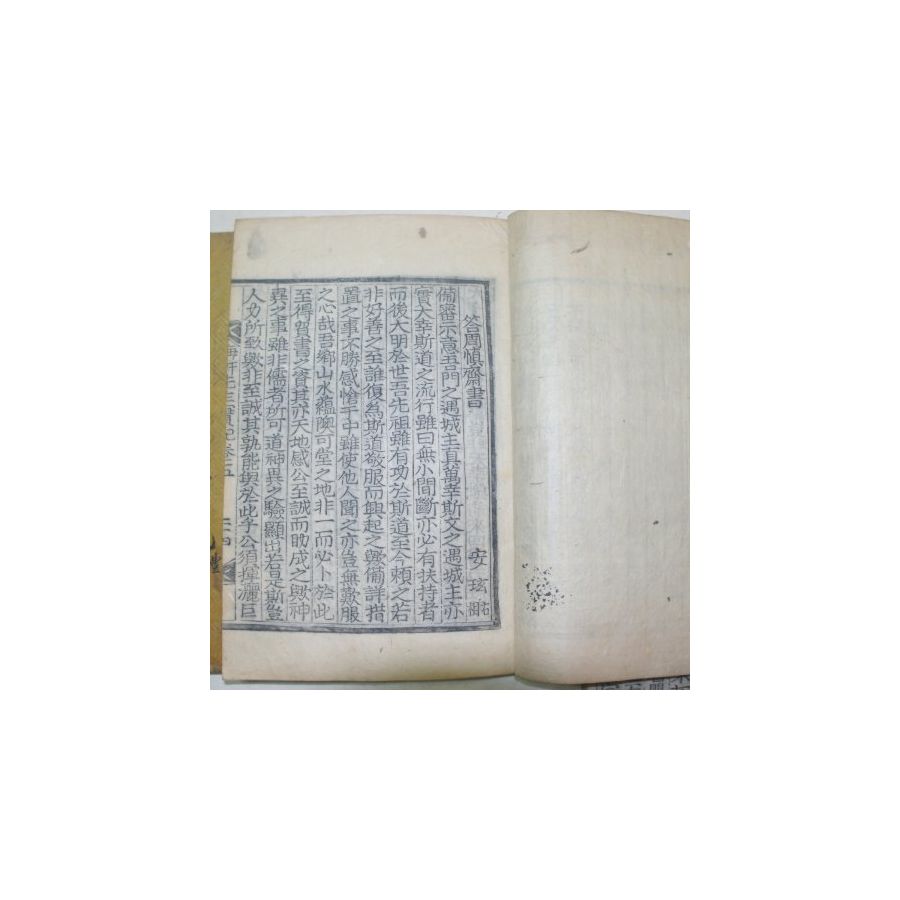 答周愼齋書
安玹 右相
備審示意吾門之遇城主眞萬幸斯文之遇城主亦
實大幸斯道之流行雖曰無小間斷亦必有扶持者
而後大明於世吾先祖雖有功於斯道至今賴之若
非好善之至誰復爲斯道敬服而興起之歟備詳措
置之事不勝感愴于中雖使他人聞之亦豈無歎服
之心哉吾鄕山水蘊隩可堂之地非一而必卜於此
至得貿書之資其亦天地感公至誠而助成之歟神
異之事雖非儒者所可道神異之驗顯出若是斯豈
人力所致歟非至誠其孰能與於此乎公須揮灑巨
實記卷之五
二十四